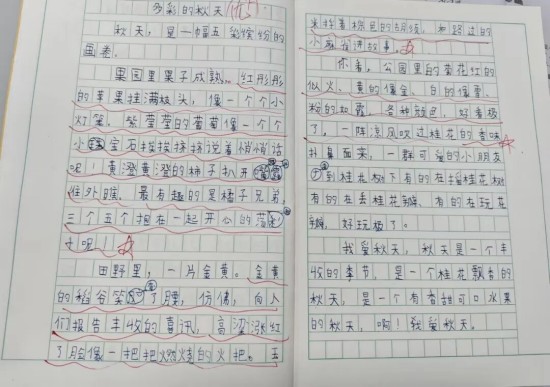 多彩的秋天 优
秋天，是一幅五彩缤纷的
画卷。
果园里果子成熟。红彤彤
的苹果挂满枝头，像一个个小
灯笼。紫莹莹的葡萄像一个个
小宝石挨挨挤挤说着悄悄话
呢！黄澄澄的柿子扒开
往外瞧。最有趣的是橘子兄弟，
三个五个抱在一起开心的荡
呢！
田野里，一片金黄。金黄
的稻谷笑了腰，仿佛，向人
们报告丰收的喜讯，高粱涨红
了脸像一把把燃烧的火把。玉
米抖着棕色的胡须，和路过的
小讲故事。
你看，公园里的菊花红的
似火、黄的像金、白的像雪、
粉的如霞，各种颜色，好看极
了，一阵凉风吹过桂花的香味
扑面而来，一群可爱的小朋友
到桂花树下有的在摇桂花树
有的在去桂花瓣、有的在玩花
瓣，好玩极了。
我爱秋天，秋天是一个丰
收的季节，是一个桂花飘香的
秋天，是一个有香甜可口水果
的秋天，啊！我爱秋天。